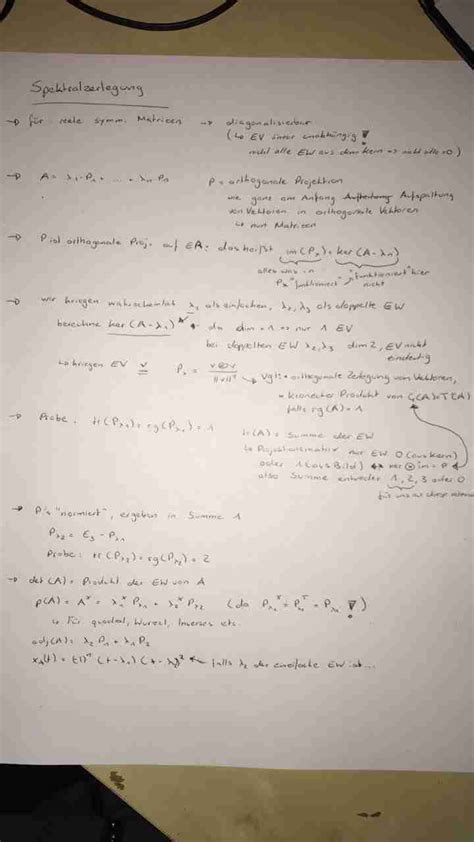 Spektralzerlegung
→ für reele symm. Matrizen → diagonalisierbar
(↳ EV linear unabhängig !
nicht alle EW aus dem Kern => nicht alle = 0)
→ A = λ₁·P₁ + ... + λn·Pn P = orthogonale Projektion
wie ganz am Anfang Aufspaltung
von Vektoren in orthogonale Vektoren
↳ nun Matrizen
→ P ist orthogonale Proj. auf EA: das heißt im(Pλ) = ker(A-λ1)
alles was in "funktioniert" hier
Pλ "funktioniert", nicht
→ wir kriegen wahrscheinlich λ₁ als einfachen, λ₂,λ₃ als doppelte EW
berechne ker(A-λ₁) da dim = 1 => nur 1 EV
bei doppelten EW λ₂,λ₃ dim 2, EV nicht
eindeutig
↳ kriegen EV v Pλ = v⊗v / ||v||² → Vgl: • orthogonale Zerlegung von Vektoren,
• Kronecker Produkt von G(A)⊗T(A)
falls rg(A) = 1
→ Probe: tr(Pλ₁) = rg(Pλ₁) = 1 tr(A) = Summe der EW
↳ Projektionsmatrix nur EW 0 (aus Kern)
oder 1 (aus Bild) ↔ ker ⊗ im = P
also Summe entweder 1, 2, 3 oder 0
→ P's "normiert", ergeben in Summe 1
Pλ₂ = E₃ - Pλ₁
Probe: tr(Pλ₂) = rg(Pλ₂) = 2
→ det(A) = Produkt der EW von A
p(A) = Aˣ = λ₁ˣ Pλ₁ + λ₂ˣ Pλ₂ (da Pλ₁ˣ = Pλ₁ⁿ = Pλ₁ !)
↳ Für quadrat, Wurzel, Inverses etc.
adj(A) = λ₂ P₁ + λ₁ P₂
χA(t) = (-1)ⁿ (t-λ₁) (t-λ₂)² ← falls λ₂ der zweifache EW ist...